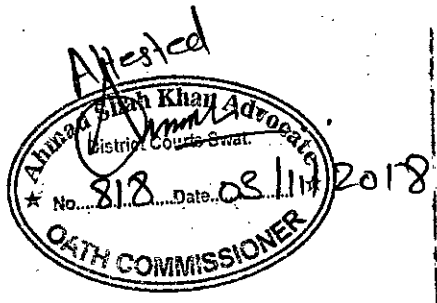 Attested
Ahmad Shah Khan Advocate
District Courts Swat.
No....818...Date..03/11/2018
OATH COMMISSIONER